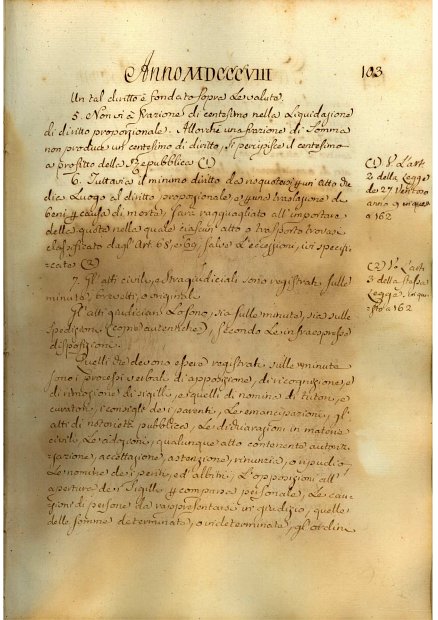 Anno MDCCCVIII
103
Un tal diritto è fondato sopra le valute.
5. Non vi è frazione di centesimo nella Liquidazione
di diritto proporzionale. Allorchè una frazione di Somma
non produce un centesimo di diritto, si percipisce il centesimo
a profitto della Repubblica (1)
6. Tuttavia il minimo diritto da riquotersi un'Atto che
dica Luogo al diritto proporzionale, o una traslazione di
beni causa di morte, sarà ragguagliato all'importare
della quota nella quale ciascun'atto o trasporto trovasi
classificato dagl'Art. 68, e 69, salve L'eccessioni, ivi specifi
cate (2)
7. Gl'atti civili, e stragiudiciali sono registrati sulle
minute, brevetti, o originali
Gl'atti giudiciari Lo sono, sia sulle minute, sia sulle
spedizioni (copie autentiche), secondo Le infraespresse
disposizioni.
Quelli che devono essere registrati sulle minute
sono i processi verbali di apposizione, di ricognizione, e
di rimozione di sigilli, e quelli di nomine di tutori, e
curatori, i consigli de i parenti, Le emancipazioni, gl'
atti di notorietà pubblica, Le dichiarazioni in materia
civile, Le adozioni, qualunque atto contenente autoriz-
zazione, accettazione, astenzione, rinunzia, o ripudio.
Le nomine de i periti, ed albitri, L'opposizioni all'
apertura de i Sigilli comparsa personale, Le cau-
zioni di persone da rappresentarsi in giudizio, quelle
delle somme determinate, o indeterminate, gl'ordini
(1) V. L'art
2 della Legge
de 27 Ventoso
anno 9 in que
a 162
(2) V. L'art
3 della stessa
Legge in que
a 162